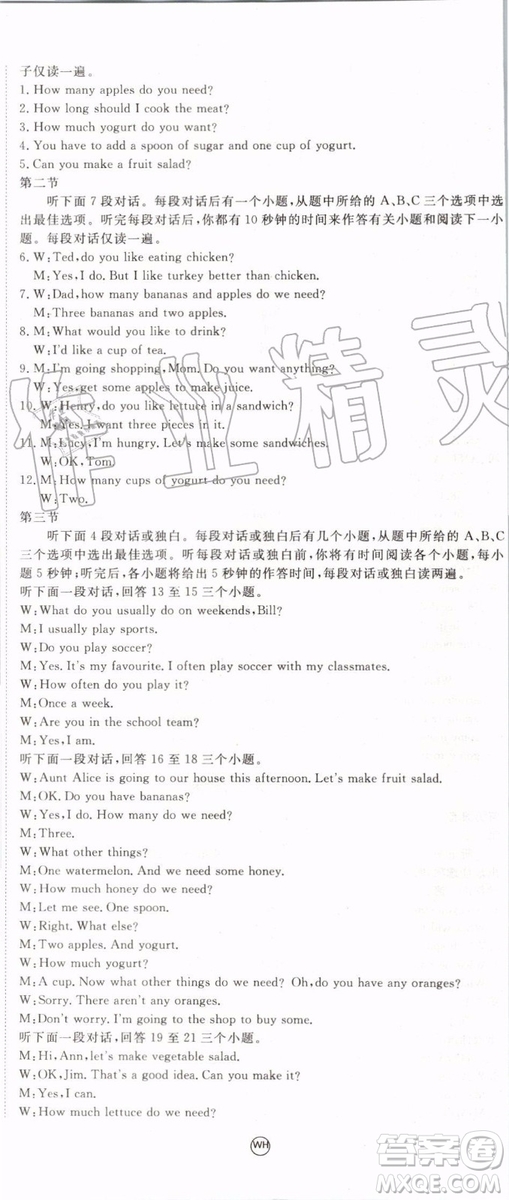 子仅读一遍。
1. How many apples do you need?
2. How long should I cook the meat?
3. How much yogurt do you want?
4. You have to add a spoon of sugar and one cup of yogurt.
5. Can you make a fruit salad?
第二节
听下面 7 段对话。每段对话后有一个小题，从题中所给的 A、B、C 三个选项中选
出最佳选项。听完每段对话后，你都有 10 秒钟的时间来作答有关小题和阅读下一小
题。每段对话仅读一遍。
6. W: Ted, do you like eating chicken?
M: Yes, I do. But I like turkey better than chicken.
7. W: Dad, how many bananas and apples do we need?
M: Three bananas and two apples.
8. M: What would you like to drink?
W: I'd like a cup of tea.
9. M: I'm going shopping, Mom. Do you want anything?
W: Yes, get some apples to make juice.
10. W: Henry, do you like lettuce in a sandwich?
M: Yes. I want three pieces in it.
11. M: Lucy, I'm hungry. Let's make some sandwiches.
W: OK, Tom.
12. M: How many cups of yogurt do you need?
W: Two.
第三节
听下面 4 段对话或独白。每段对话或独白后有几个小题，从题中所给的 A、B、C
三个选项中选出最佳选项。听每段对话或独白前，你将有时间阅读各个小题，每小
题 5 秒钟；听完后，各小题将给出 5 秒钟的作答时间，每段对话或独白读两遍。
听下面一段对话，回答 13 至 15 三个小题。
W: What do you usually do on weekends, Bill?
M: I usually play sports.
W: Do you play soccer?
M: Yes. It's my favourite. I often play soccer with my classmates.
W: How often do you play it?
M: Once a week.
W: Are you in the school team?
M: Yes, I am.
听下面一段对话，回答 16 至 18 三个小题。
W: Aunt Alice is going to our house this afternoon. Let's make fruit salad.
M: OK. Do you have bananas?
W: Yes, I do. How many do we need?
M: Three.
W: What other things?
M: One watermelon. And we need some honey.
W: How much honey do we need?
M: Let me see. One spoon.
W: Right. What else?
M: Two apples. And yogurt.
W: How much yogurt?
M: A cup. Now what other things do we need? Oh, do you have any oranges?
W: Sorry. There aren't any oranges.
M: Don't worry. I'm going to the shop to buy some.
听下面一段对话，回答 19 至 21 三个小题。
M: Hi, Ann, let's make vegetable salad.
W: OK, Jim. That's a good idea. Can you make it?
M: Yes, I can.
W: How much lettuce do we need?
WH
作业精灵
答案圈
MXQE.COM